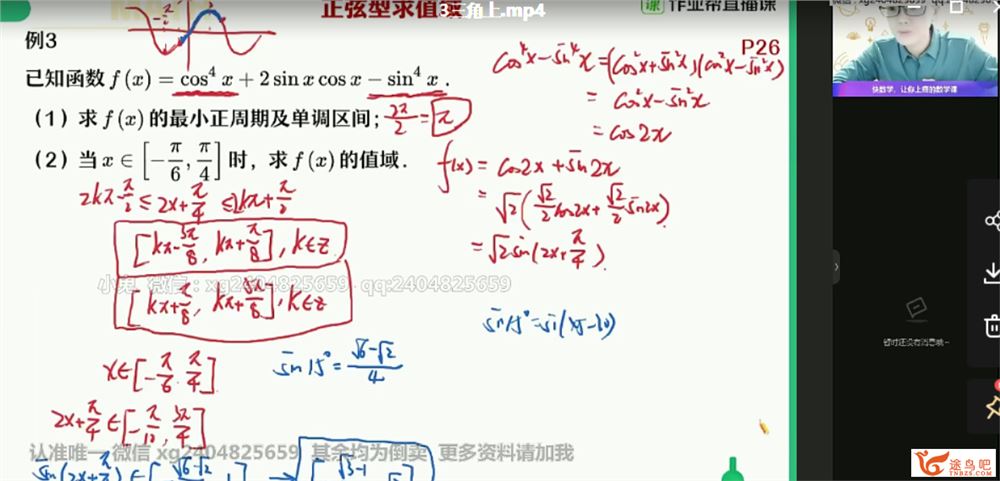 正弦型求值域
3三角上.mp4
作业帮直播课
例3
P26
已知函数 f(x) = cos⁴ x + 2 sin x cos x − sin⁴ x .
(1) 求 f(x) 的最小正周期及单调区间; 2π/2 = π
(2) 当 x ∈ [−π/6, π/4] 时, 求 f(x) 的值域.
cos⁴x − sin⁴x = (cos²x + sin²x)(cos²x − sin²x)
= cos²x − sin²x
= cos2x
f(x) = cos2x + sin2x
= √2(√2/2 cos2x + √2/2 sin2x)
= √2 sin(2x + π/4).
2kπ − π/2 ≤ 2x + π/4 ≤ 2kπ + π/2
[kπ − 3π/8, kπ + π/8], k∈Z
小兔 微信:xg2404825659 qq:2404825659
[kπ + π/8, kπ + 5π/8], k∈Z
sin15° = sin(45−30)
x∈[−π/6, π/4]
sin15° = (√6−√2)/4
2x + π/4 ∈ [−π/12, 3π/4]
认准唯一 微信 xg2404825659 其余均为倒卖 更多资料请加我
快数学,让你上瘾的数学课
暂时还没有消息哦~
途鸟吧
TNBZS.COM